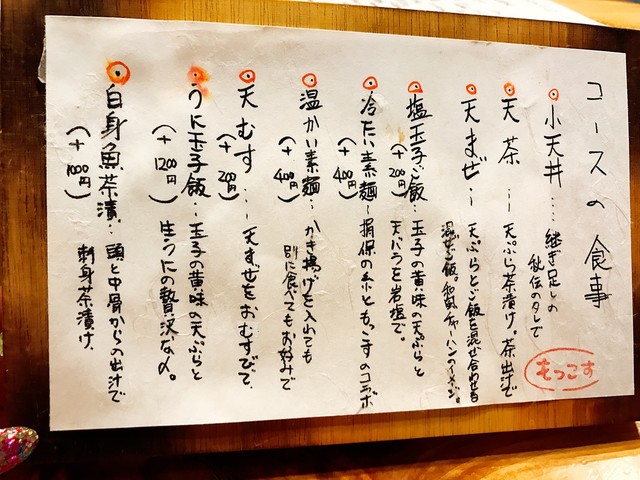 コースの食事
小天丼…. 継ぎ足しの
秘伝のタレで
天茶…. 天ぷら茶漬け。茶出汁で
天まぜ… 天ぷらとご飯を混ぜ合わせる
混ぜご飯。和風チャーハンのイメージ。
塩玉子ご飯… 玉子の黄味の天ぷらと
(+200円) 天バラを岩塩で。
冷たい素麺… 揖保の糸ともっこすのコラボ
(+400円)
温かい素麺… かき揚げを入れても
(+400円) 別に食べてもお好みで
天むす…. 天まぜをおむすびで。
(+200円)
うに玉子飯… 玉子の黄味の天ぷらと
(+1200円) 生うにの贅沢な〆。
白身魚茶漬… 頭と中骨からの出汁で
(+1000円) 刺身茶漬け。
もっこす